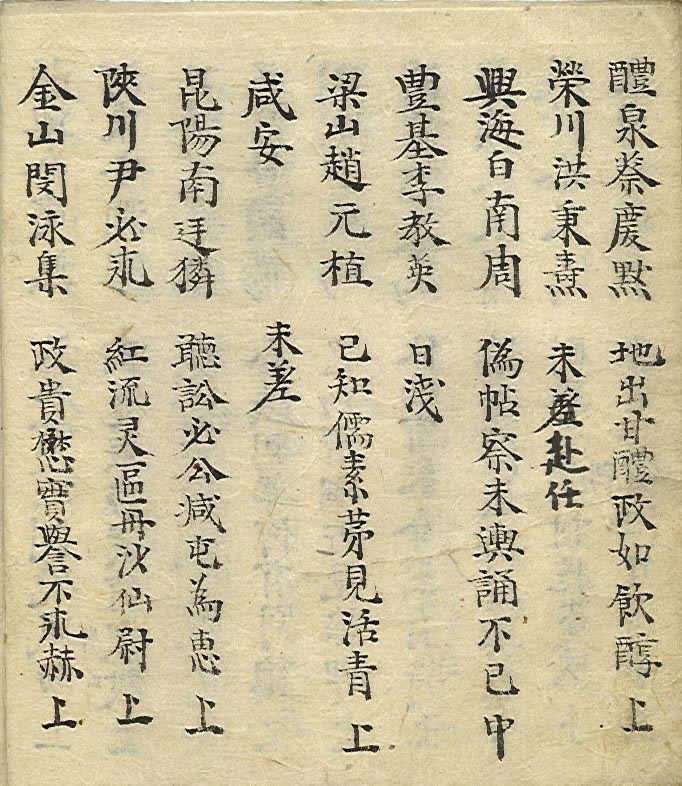 醴泉蔡慶默 地出甘醴政如飮醇 上
榮川洪秉燾 未差赴任
興海白南周 偽帖察未輿誦不已 中
豊基李教英 日淺
梁山趙元植 已知儒素苐見活青 上
咸安 未差
昆陽南廷獜 聽訟必公减屯為惠 上
陜川尹必求 紅流灵區丹沙仙尉 上
金山閔泳集 政貴懋實譽不求赫 上